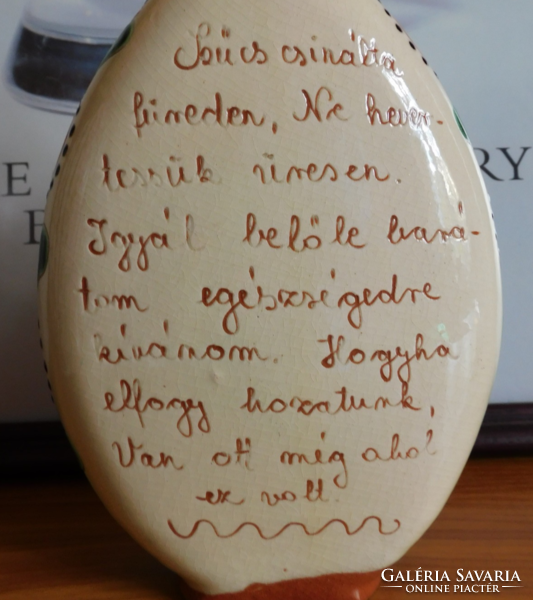 Szűcs csinálta
füreden, Ne hever-
tessük üresen.
Igyál belőle bará-
tom egészségedre
kívánom. Hogyha
elfogy hozatunk,
Van ott még ahol
ez volt.
RY
E
GALÉRIA SAVARIA
ONLINE PIACTÉR